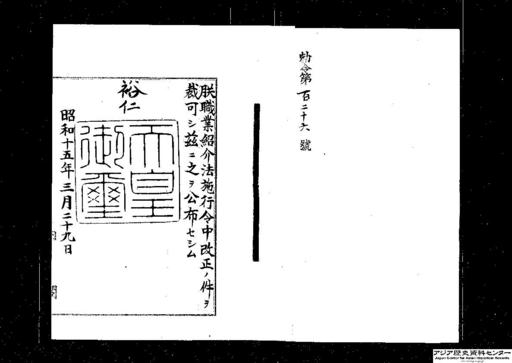 勅令第百二十六號
朕職業紹介法施行令中改正ノ件ヲ
裁可シ茲ニ之ヲ公布セシム
裕仁
天皇
御璽
昭和十五年三月二十九日
アジア歴史資料センター
Japan Center for Asian Historical Records